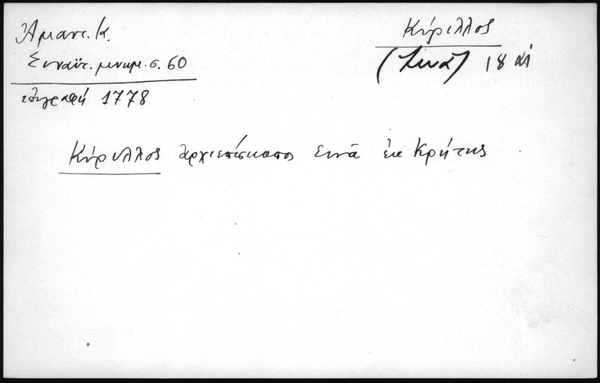 Ἀμαντ. Κ.
Σιναϊτ. μνημ. σ. 60
ἐπιγραφή 1778
Κύριλλος
(Σινᾶ) 18 αἰ
Κύριλλος ἀρχιεπίσκοπος Σινᾶ ἐκ Κρήτης